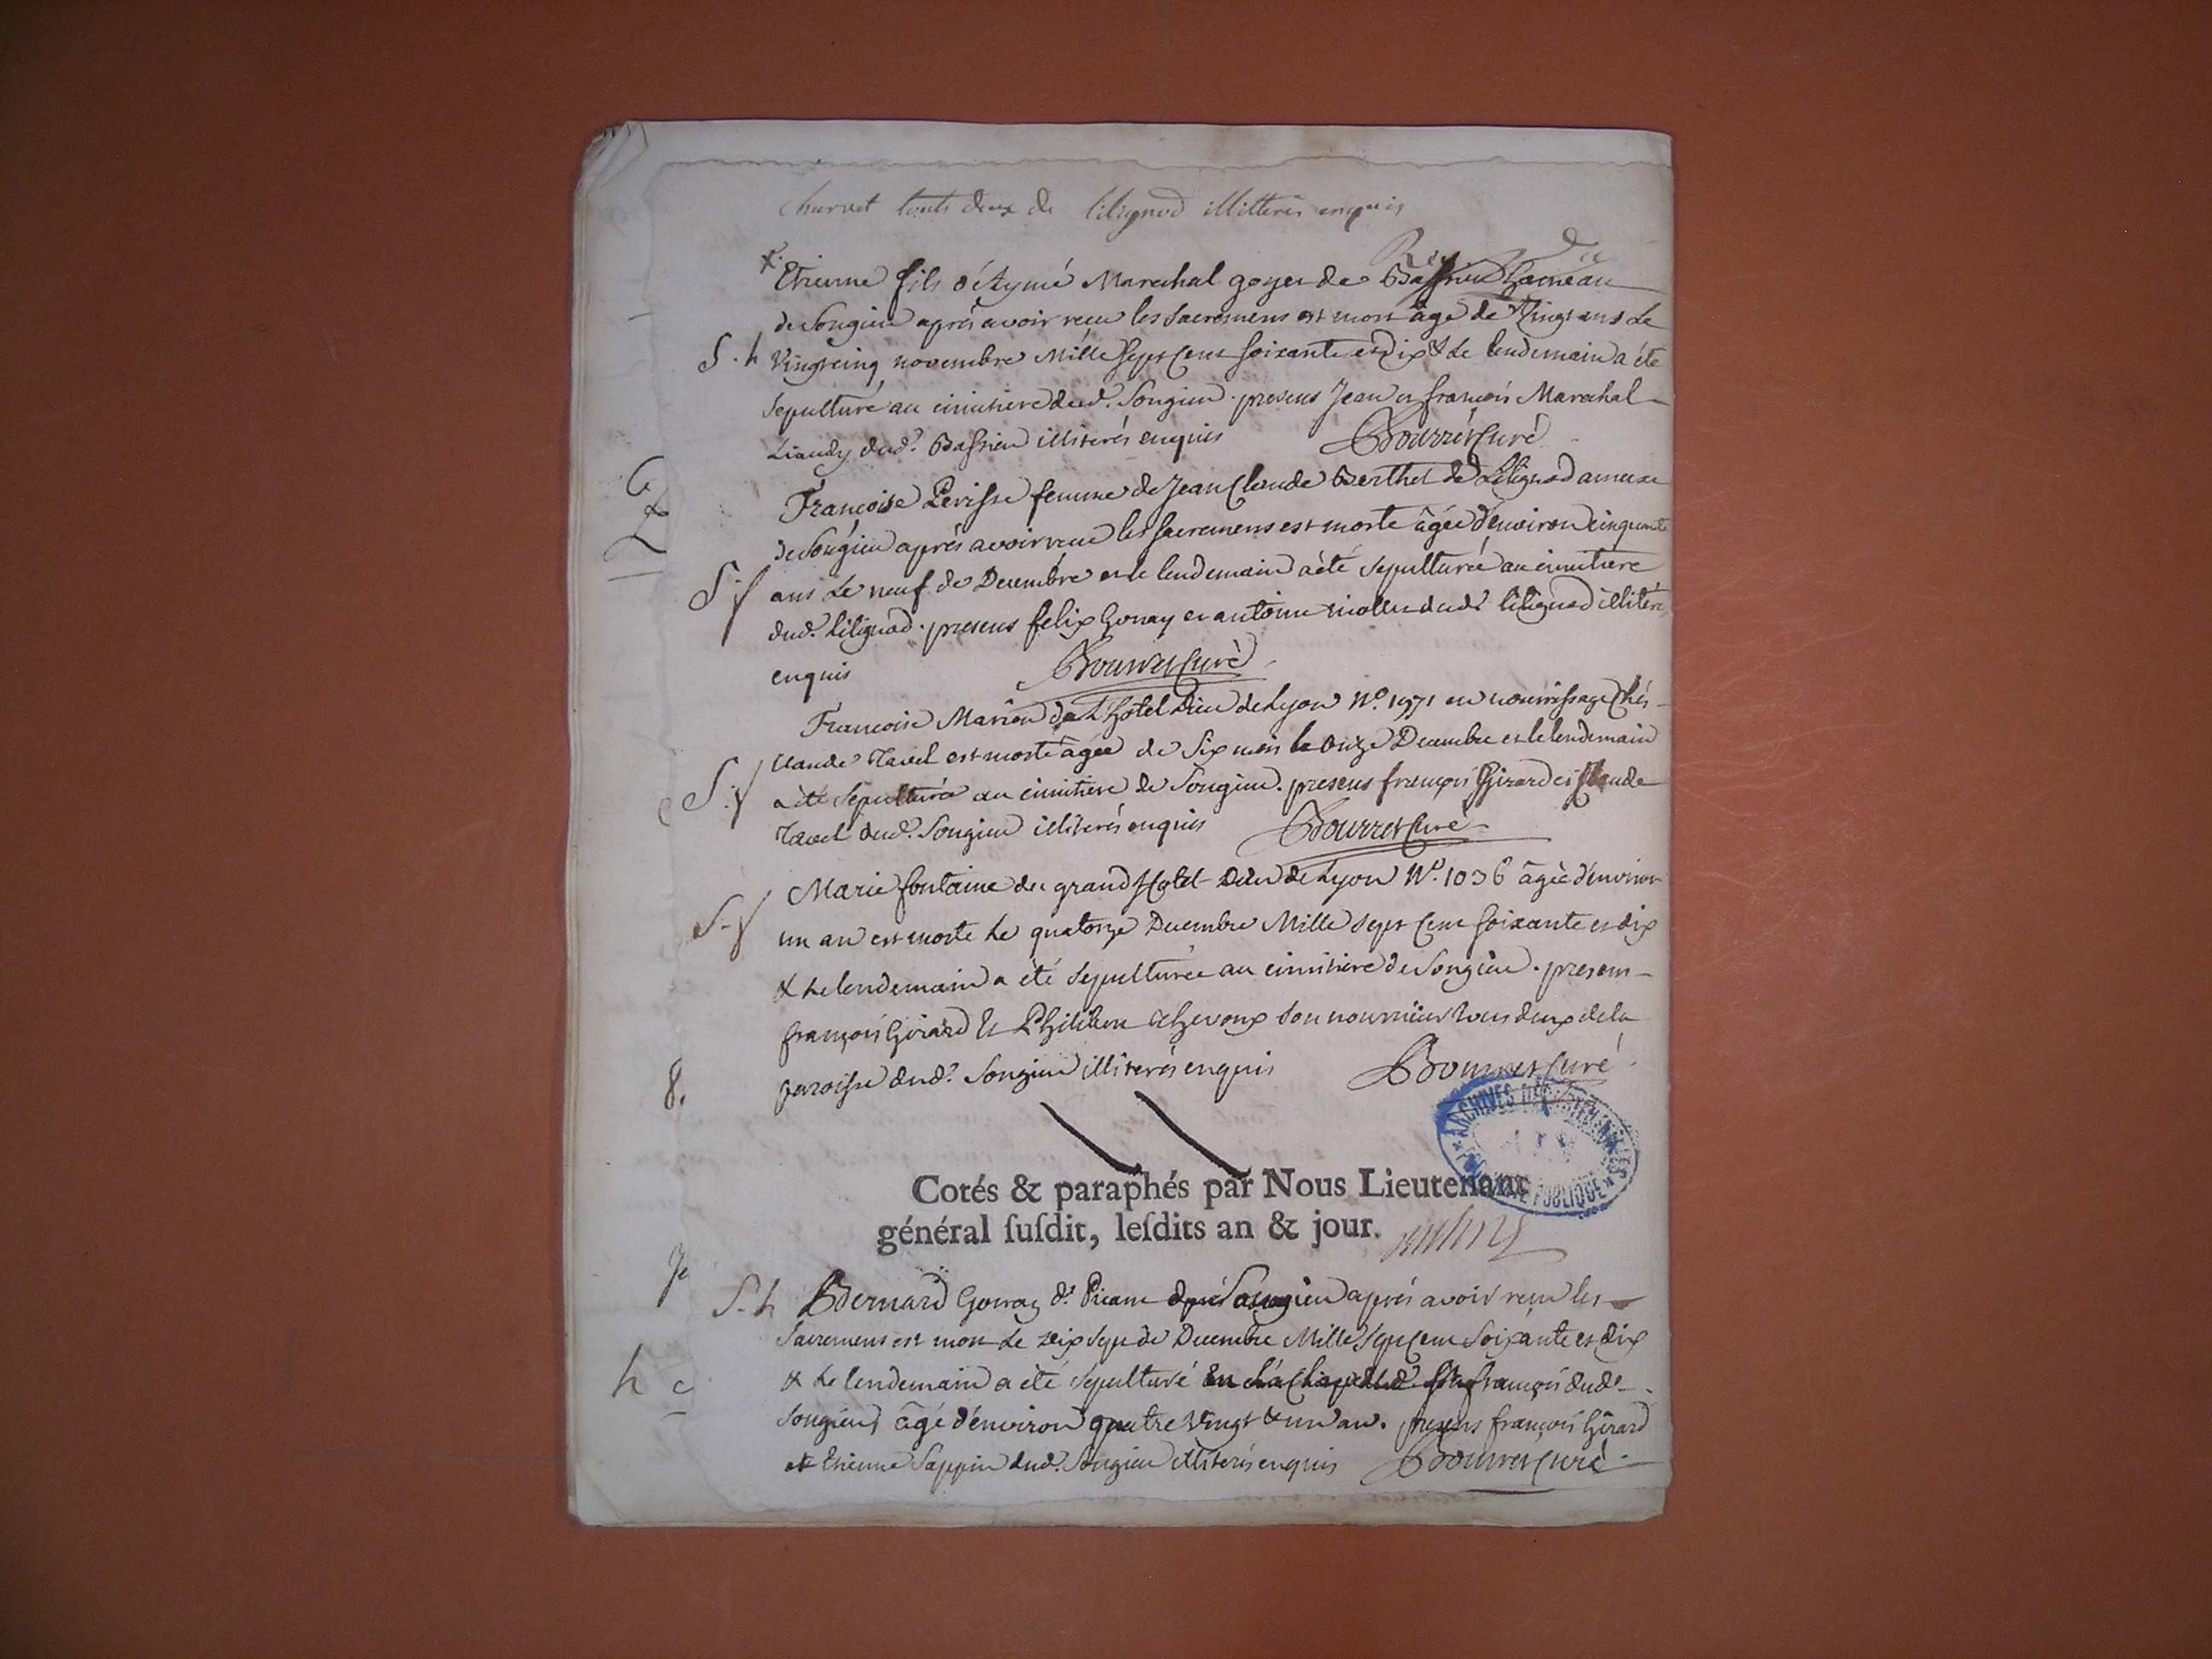 Charvet touts deux de lilignod illitteres enquis
Etienne fils d'Aymé Marechal goyet de Bassieu hameau
de Songieu après avoir reçu les sacremens est mort âgé de Vingt ans Le
S. h Vingt cinq novembre Mille Sept Cent soixante et dix & Le lendemain a été
sepulturé au cimitiere dud. Songieu. presens Jean et françois Marechal
Liaudy dud. Bassieu illiterés enquis Bourret Curé
Françoise Perisse femme de Jean Claude Berthet de Lilignod annexe
de Songieu après avoir reçu les sacremens est morte âgée d'environ cinquante
S. f ans Le neuf de Decembre et le lendemain a été sepulturée au cimitiere
dud. Lilignod. presens felix Gonay et antoine dud. lilignod illiterés
enquis Bourret Curé
Francoise Marion de L'hotel Dieu de Lyon N.o 1971 en nourrissage Chés
Claude Tavel est morte âgée de Six mois le onze Decembre et le lendemain
S. f a été sepulturée au cimitiere de Songieu. presens françois Girard et Claude
Tavel dud. Songieu illiterés enquis Bourret Curé
Marie fontaine du grand Hotel Dieu de Lyon N.o 1036 âgée d'environ
S. f un an est morte Le quatorze Decembre Mille Sept Cent soixante et dix
& Le lendemain a été sepulturée au cimitiere de Songieu. presens
françois Girard et Philibert son nourricier tous deux de la
8. paroisse dud. Songieu illiterés enquis Bourret Curé
ARCHIVES DÉPARTEMENTALES
AIN
PUBLIQUE
Cotés & paraphés par Nous Lieutenant
général ſuſdit, leſdits an & jour.
S. h Bernard Gonay d. Songieu après avoir reçu les
Sacremens est mort Le dix Sept de Decembre Mille Sept Cent Soixante et dix
h c & Le lendemain a été sepulturé en la Chapelle françois dud.
Songieu, âgé d'environ quatre Vingt & un an. presens françois Girard
et Etienne Sappin dud. Songieu illiterés enquis Bourret Curé